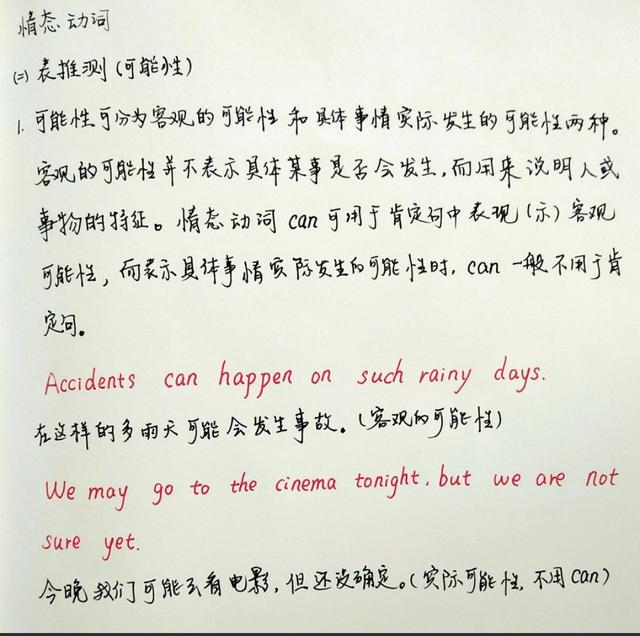 情态动词
(二) 表推测(可能性)
1. 可能性可分为客观的可能性和具体事情实际发生的可能性两种。
客观的可能性并不表示具体某事是否会发生,而用来说明人或
事物的特征。情态动词 can 可用于肯定句中表现(示)客观
可能性,而表示具体事情实际发生的可能性时, can 一般不用于肯
定句。
Accidents can happen on such rainy days.
在这样的多雨天可能会发生事故。(客观的可能性)
We may go to the cinema tonight, but we are not
sure yet.
今晚我们可能去看电影,但还没确定。(实际可能性,不用can)